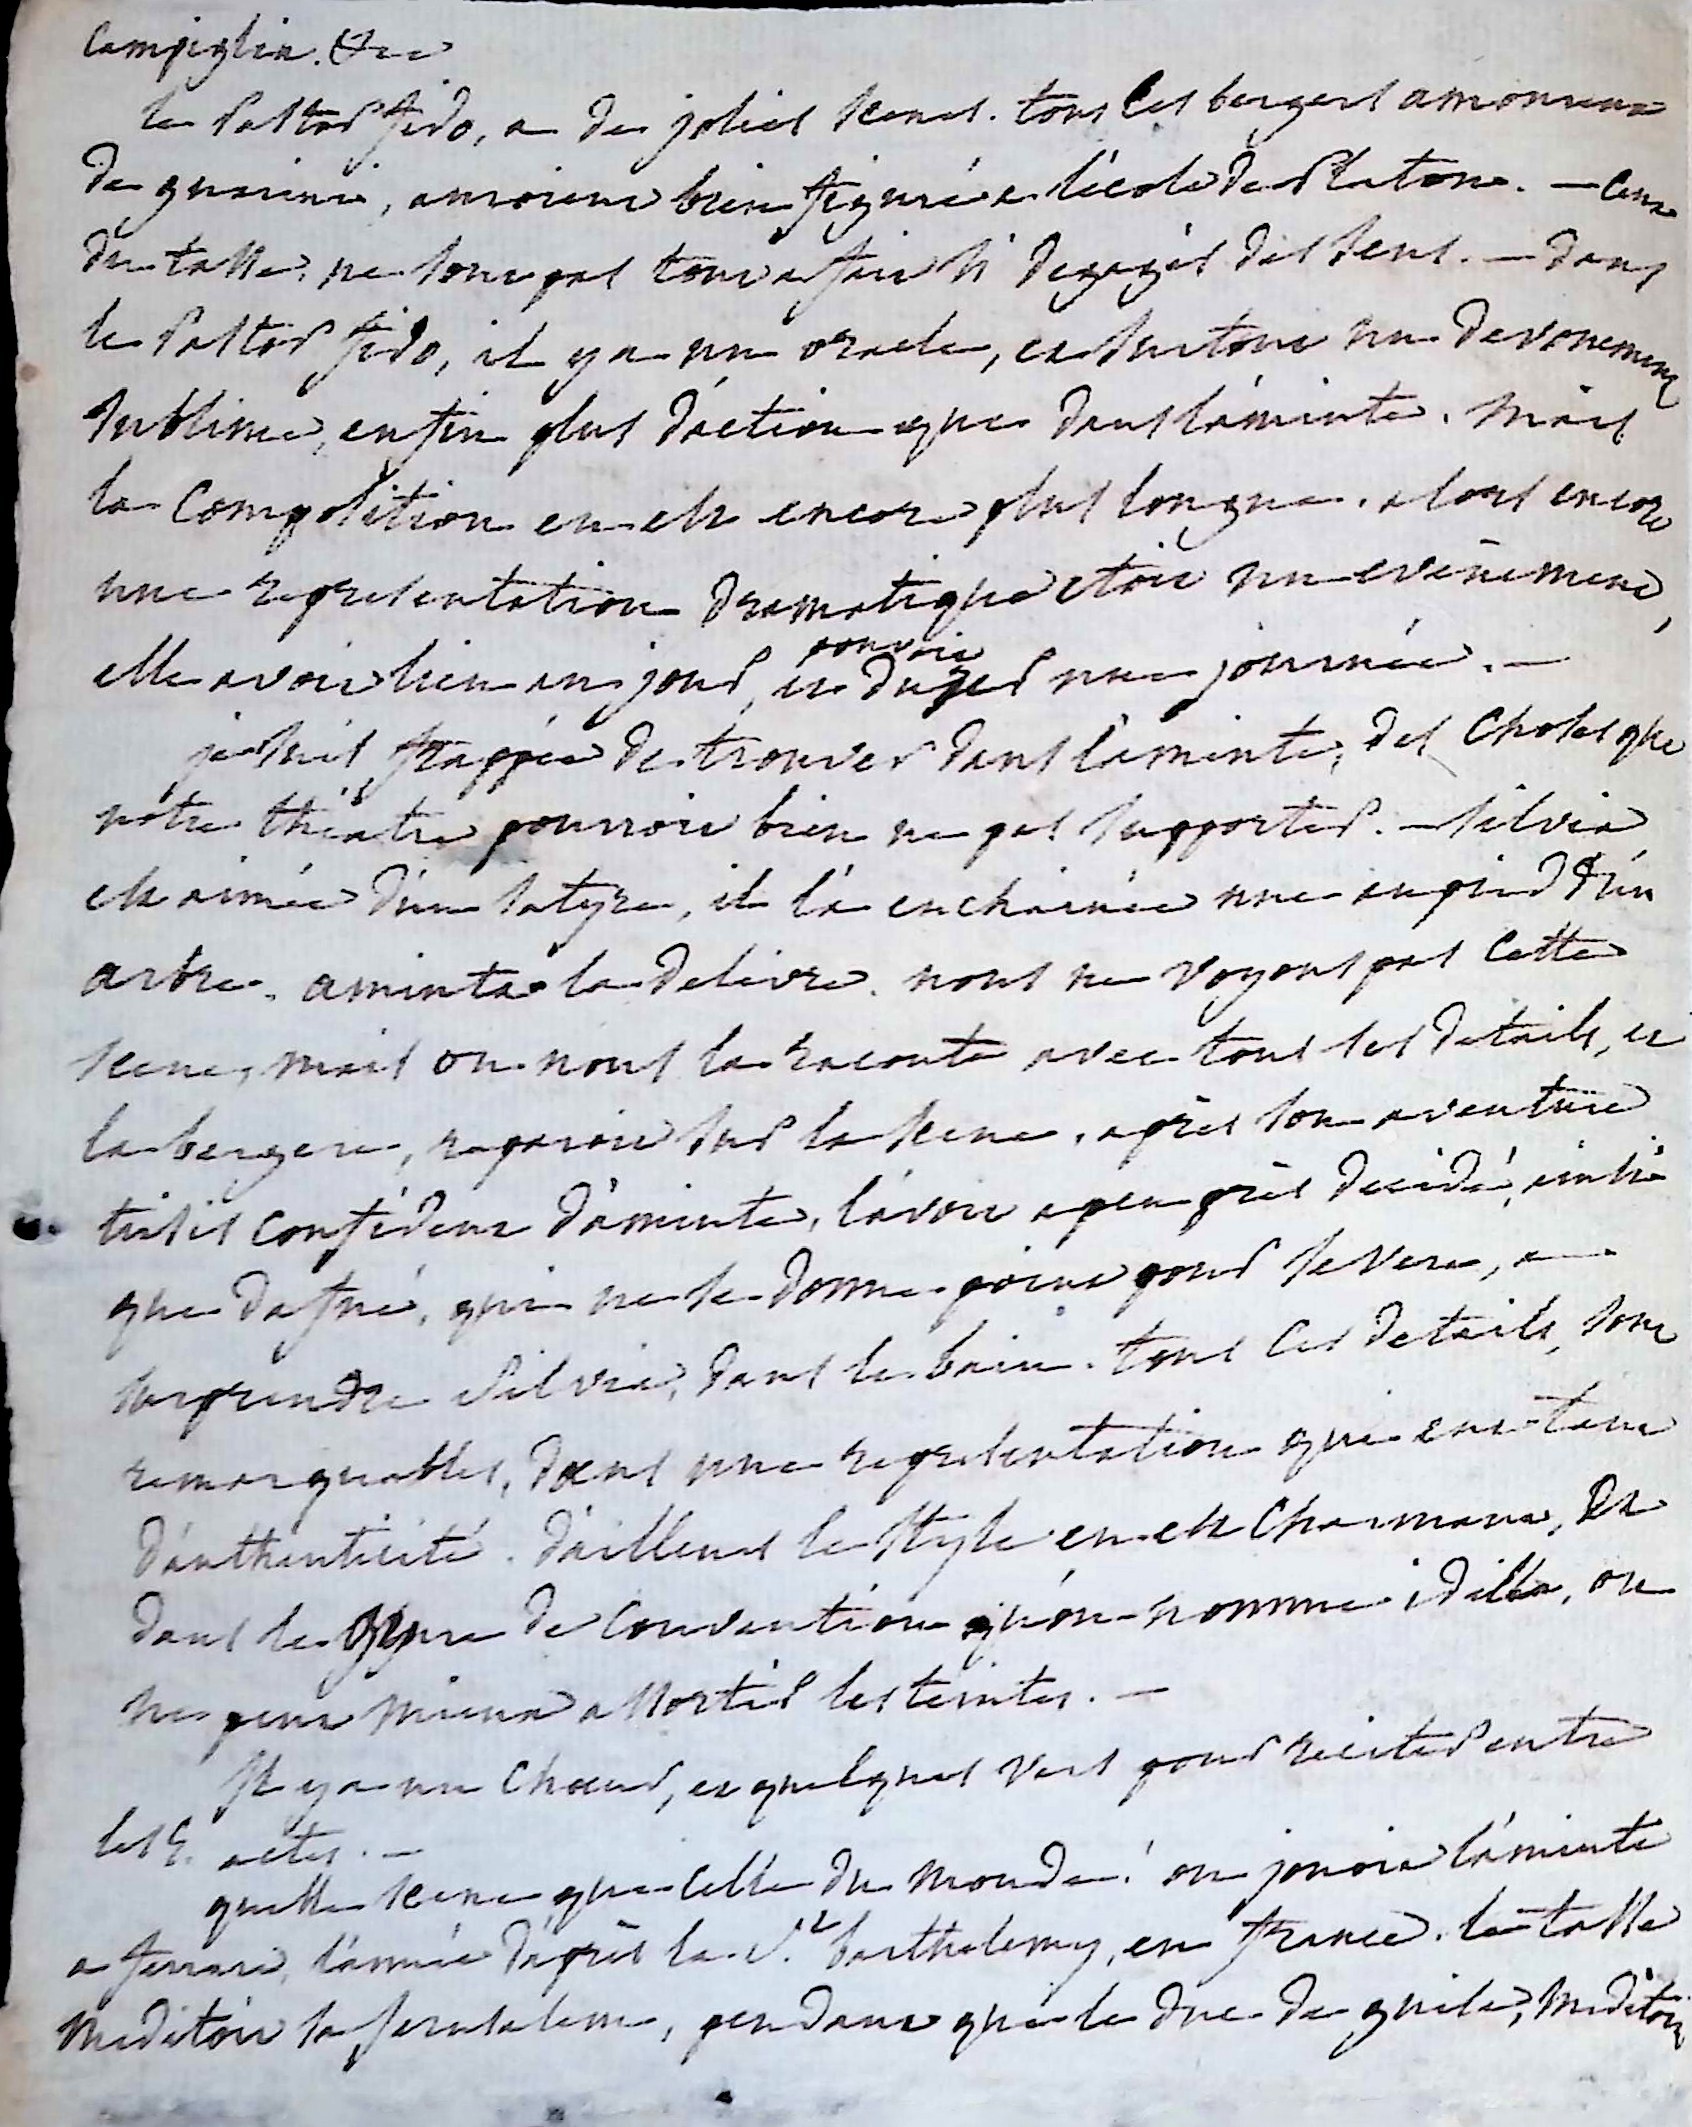 Campiglia. &c
le Pastor fido, a de jolies scenes. tous les bergers amoureux
de guarini, auroient bien figuré a l'école de Platon. — Ceux
du tasse, ne sont pas tout a fait si degagés des sens. — dans
le Pastor fido, il y a un oracle, et surtout un devouement
sublime, enfin plus d'action que dans l'aminte. Mais
la Composition en est encore plus longue. alors encore
une representation dramatique etoit un evenement,
elle avoit lieu un jour, et pouvoit durer une journée. —
je suis frappée de trouver dans l'aminte, des choses que
notre théatre pourroit bien ne pas supporter. — Silvia
est aimée d'un satyre, il l'a enchainée nue au pied d'un
arbre. aminta la delivre. nous ne voyons pas cette
scene, mais on nous la raconte avec tous ses details, et
la bergere, reparoit sur la scene, après son aventure
tirsis confident d'aminte, l'avoit a peu près decidé, ainsi
que dafné, qui ne se donne point pour severe, a
surprendre Silvia, dans le bain. tous ces details, sont
remarquables, dans une representation qui eut tant
d'authenticité. d'ailleurs le style en est charmant, Et
dans le genre de convention qu'on nomme idille, on
ne peut mieux assortir les teintes. —
Il y a un choeur, et quelques vers pour reciter entre
les 5. actes. —
quelle scene que celle du monde! on jouoit l'aminte
a ferrare, l'année d'après la St. barthelemy, en france. le tasse
meditoit sa jerusalem, pendant que le duc de guise, meditoit